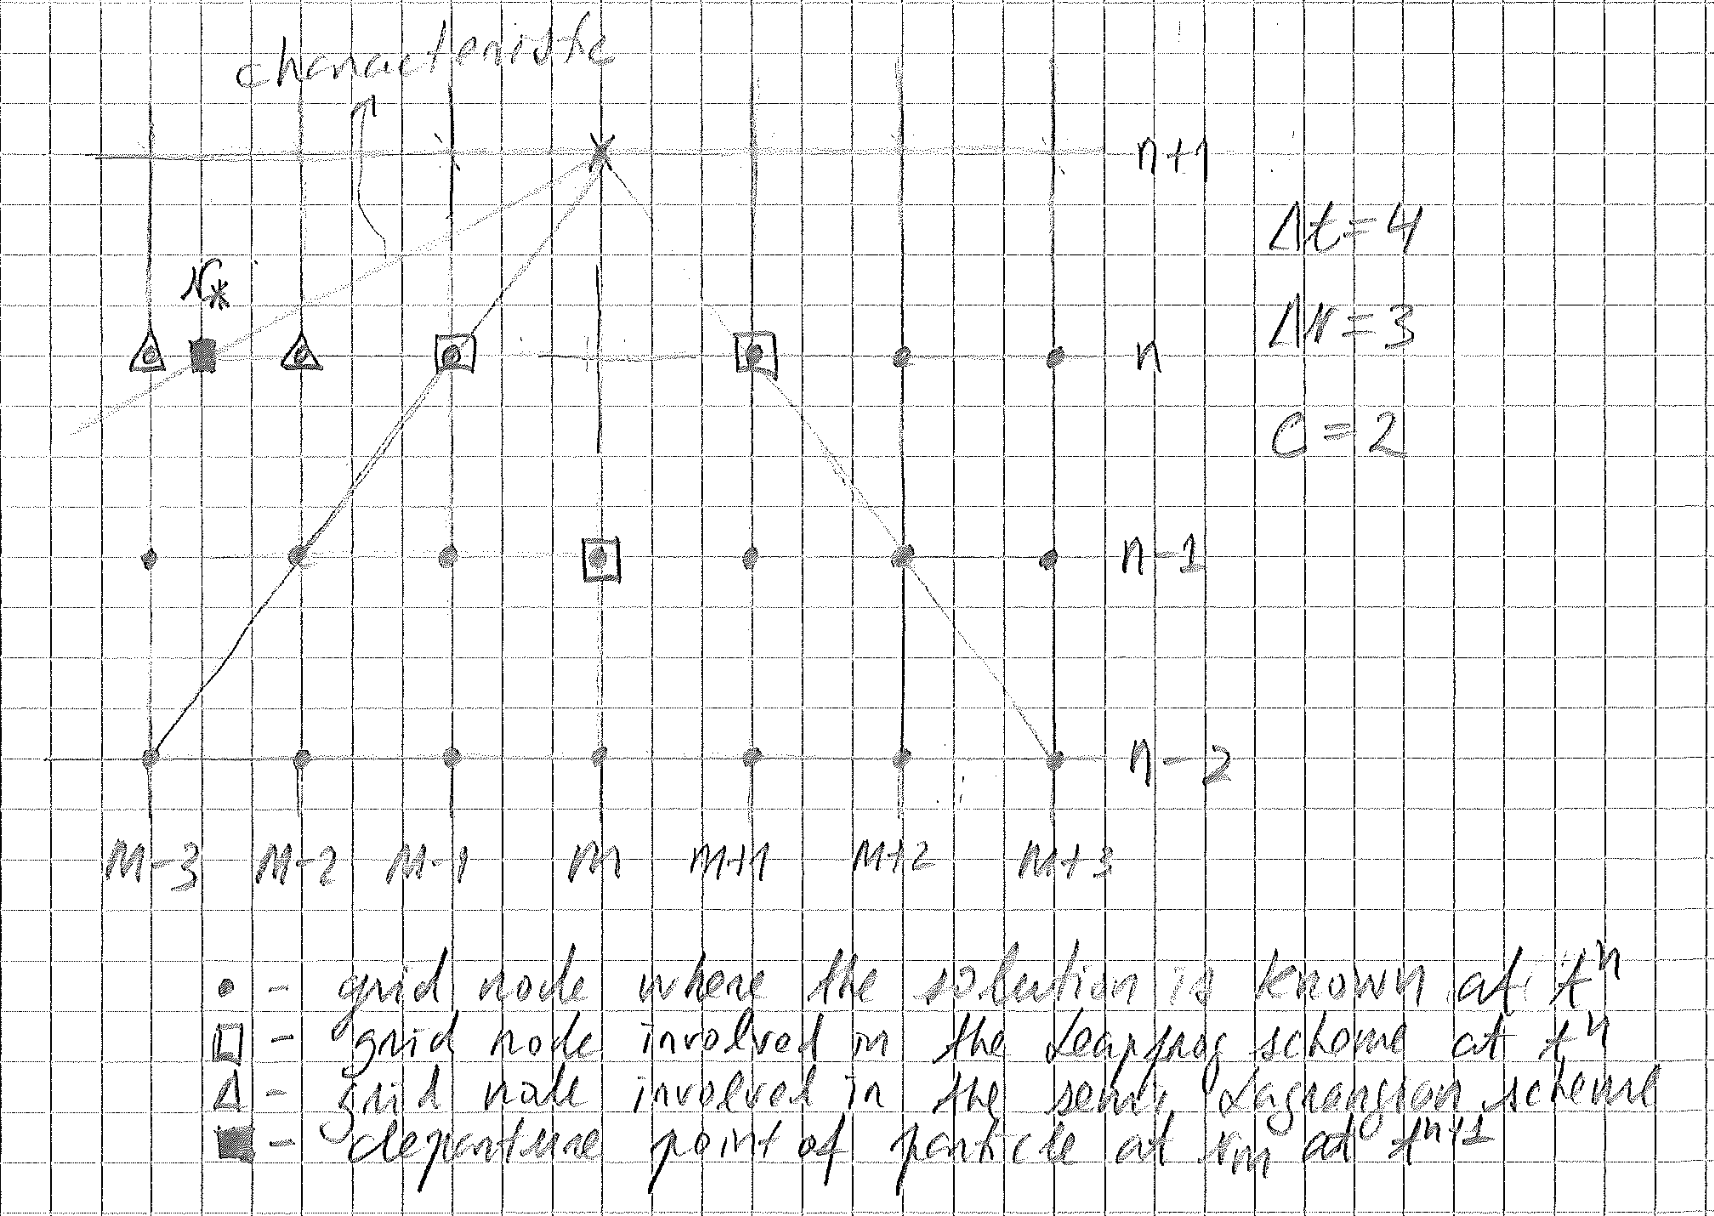 characteristic
n+1
Δt=4
x*
Δx=3
n
c=2
n-1
n-2
m-3 m-2 m-1 m m+1 m+2 m+3
• - grid node where the solution is known at tⁿ
□ - grid node involved in the Leapfrog scheme at tⁿ
△ - grid node involved in the semi Lagrangian scheme
■ - departure point of particle at xm at tⁿ⁺¹